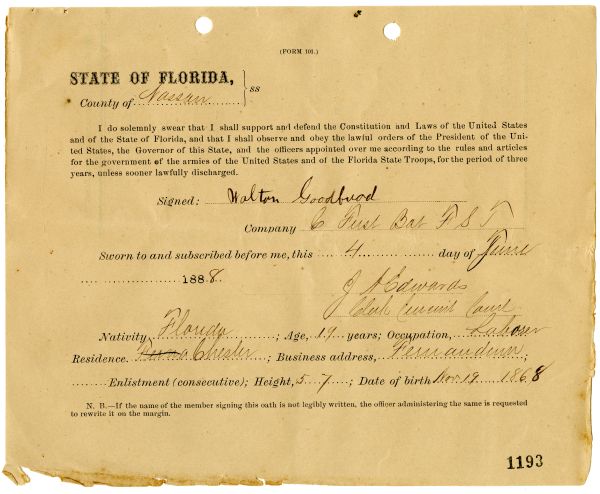 (FORM 101.)
STATE OF FLORIDA, } ss
County of Nassau
I do solemnly swear that I shall support and defend the Constitution and Laws of the United States
and of the State of Florida, and that I shall observe and obey the lawful orders of the President of the Uni-
ted States, the Governor of this State, and the officers appointed over me according to the rules and articles
for the government of the armies of the United States and of the Florida State Troops, for the period of three
years, unless sooner lawfully discharged.
Signed: Walton Goodbrod
Company C First Bat F S T
Sworn to and subscribed before me, this 4 day of June
1888.
J A Edwards
Clerk Circuit Court
Nativity, Florida ; Age, 19 years; Occupation, Laborer
Residence. Chester ; Business address, Fernandina ;
Enlistment (consecutive); Height, 5 7 ; Date of birth Nov 19 1868
N. B.—If the name of the member signing this oath is not legibly written, the officer administering the same is requested
to rewrite it on the margin.
1193